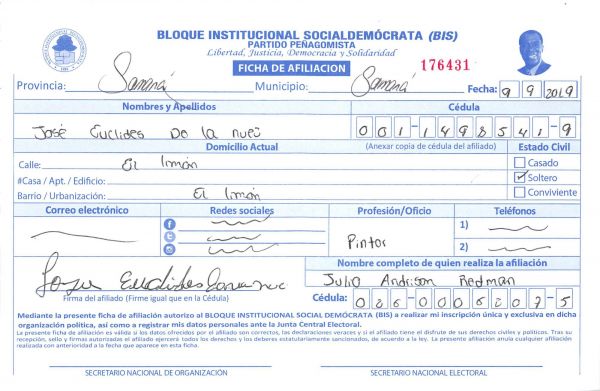 BLOQUE INSTITUCIONAL SOCIALDEMÓCRATA (BIS)
PARTIDO PEÑAGOMISTA
Libertad, Justicia, Democracia y Solidaridad
FICHA DE AFILIACION
176431
Provincia: Samaná Municipio: Samaná Fecha: 9 9 2019
Nombres y Apellidos Cédula
José Euclides De la 001-1498541-9
Domicilio Actual (Anexar copia de cédula del afiliado) Estado Civil
Calle: El limón Casado
#Casa / Apt. / Edificio: Soltero
Barrio / Urbanización: El limón Conviviente
Correo electrónico Redes sociales Profesión/Oficio Teléfonos
1)
Pintor
2)
Nombre completo de quien realiza la afiliación
Julio Andrison Redman
Firma del afiliado (Firme igual que en la Cédula) Cédula:
Mediante la presente ficha de afiliación autorizo al BLOQUE INSTITUCIONAL SOCIAL DEMÓCRATA (BIS) a realizar mi inscripción única y exclusiva en dicha
organización política, así como a registrar mis datos personales ante la Junta Central Electoral.
La presente ficha de afiliación es válida si los datos ofrecidos por el afiliado son correctos, las declaraciones veraces y si el afiliado tiene el disfrute de sus derechos civiles y políticos. Tras su
recepción, sello y firmas autorizadas el afiliado ejercerá todos los derechos y los deberes estatutariamente sancionados, de acuerdo a la ley. La presente afiliación anula cualquier afiliación
realizada con anterioridad a la fecha que aparece en esta ficha.
SECRETARIO NACIONAL DE ORGANIZACIÓN SECRETARIO NACIONAL ELECTORAL